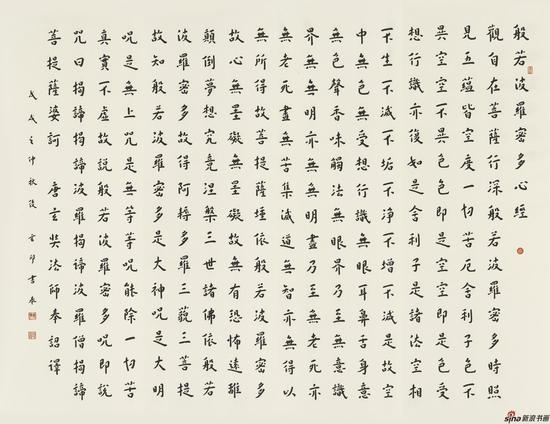 般若波羅密多心經
觀自在菩薩行深般若波羅密多時照
見五蘊皆空度一切苦厄舍利子色不
異空空不異色色即是空空即是色受
想行識亦復如是舍利子是諸法空相
不生不滅不垢不淨不增不減是故空
中無色無受想行識無眼耳鼻舌身意
無色聲香味觸法無眼界乃至無意識
界無無明亦無無明盡乃至無老死亦
無老死盡無苦集滅道無智亦無得以
無所得故菩提薩埵依般若波羅密多
故心無罣礙無罣礙故無有恐怖遠離
顛倒夢想究竟涅槃三世諸佛依般若
波羅密多故得阿耨多羅三藐三菩提
故知般若波羅密多是大神呪是大明
呪是無上呪是無等等呪能除一切苦
真實不虛故說般若波羅密多呪即說
呪曰揭諦揭諦波羅揭諦波羅僧揭諦
菩提薩婆訶 唐玄奘法師奉詔譯
戊戌之仲秋後 書奉
sina新浪书画